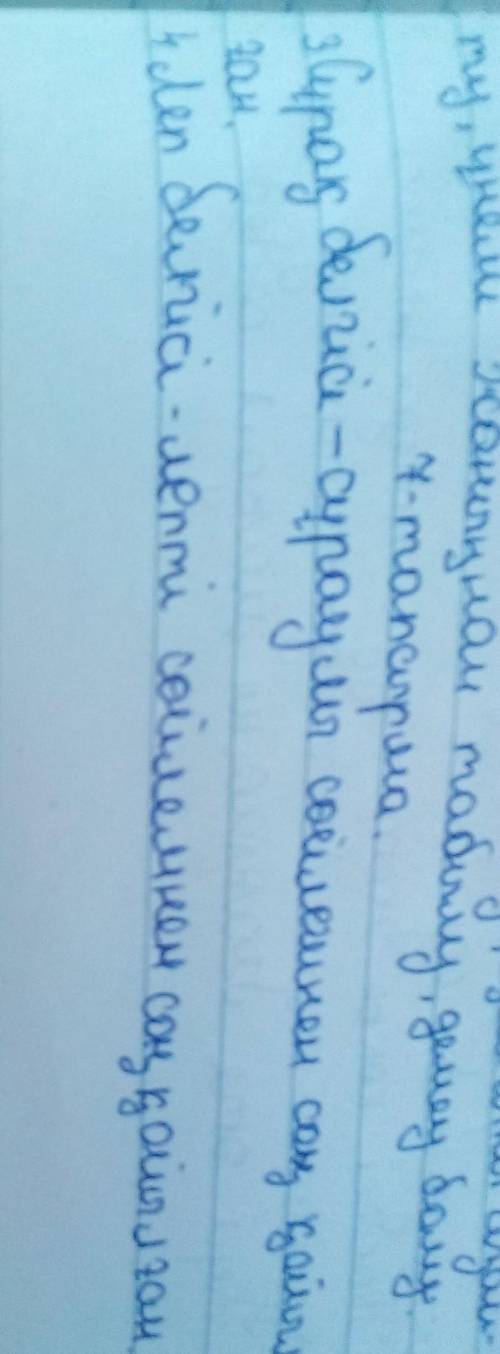 ту, үнемі жанынан табылу, демеу болу.
7-тапсырма.
3 Сұрақ белгісі – сұраулы сөйлемнен соң қойыл
ған.
4 Леп белгісі - лепті сөйлемнен соң қойылған.